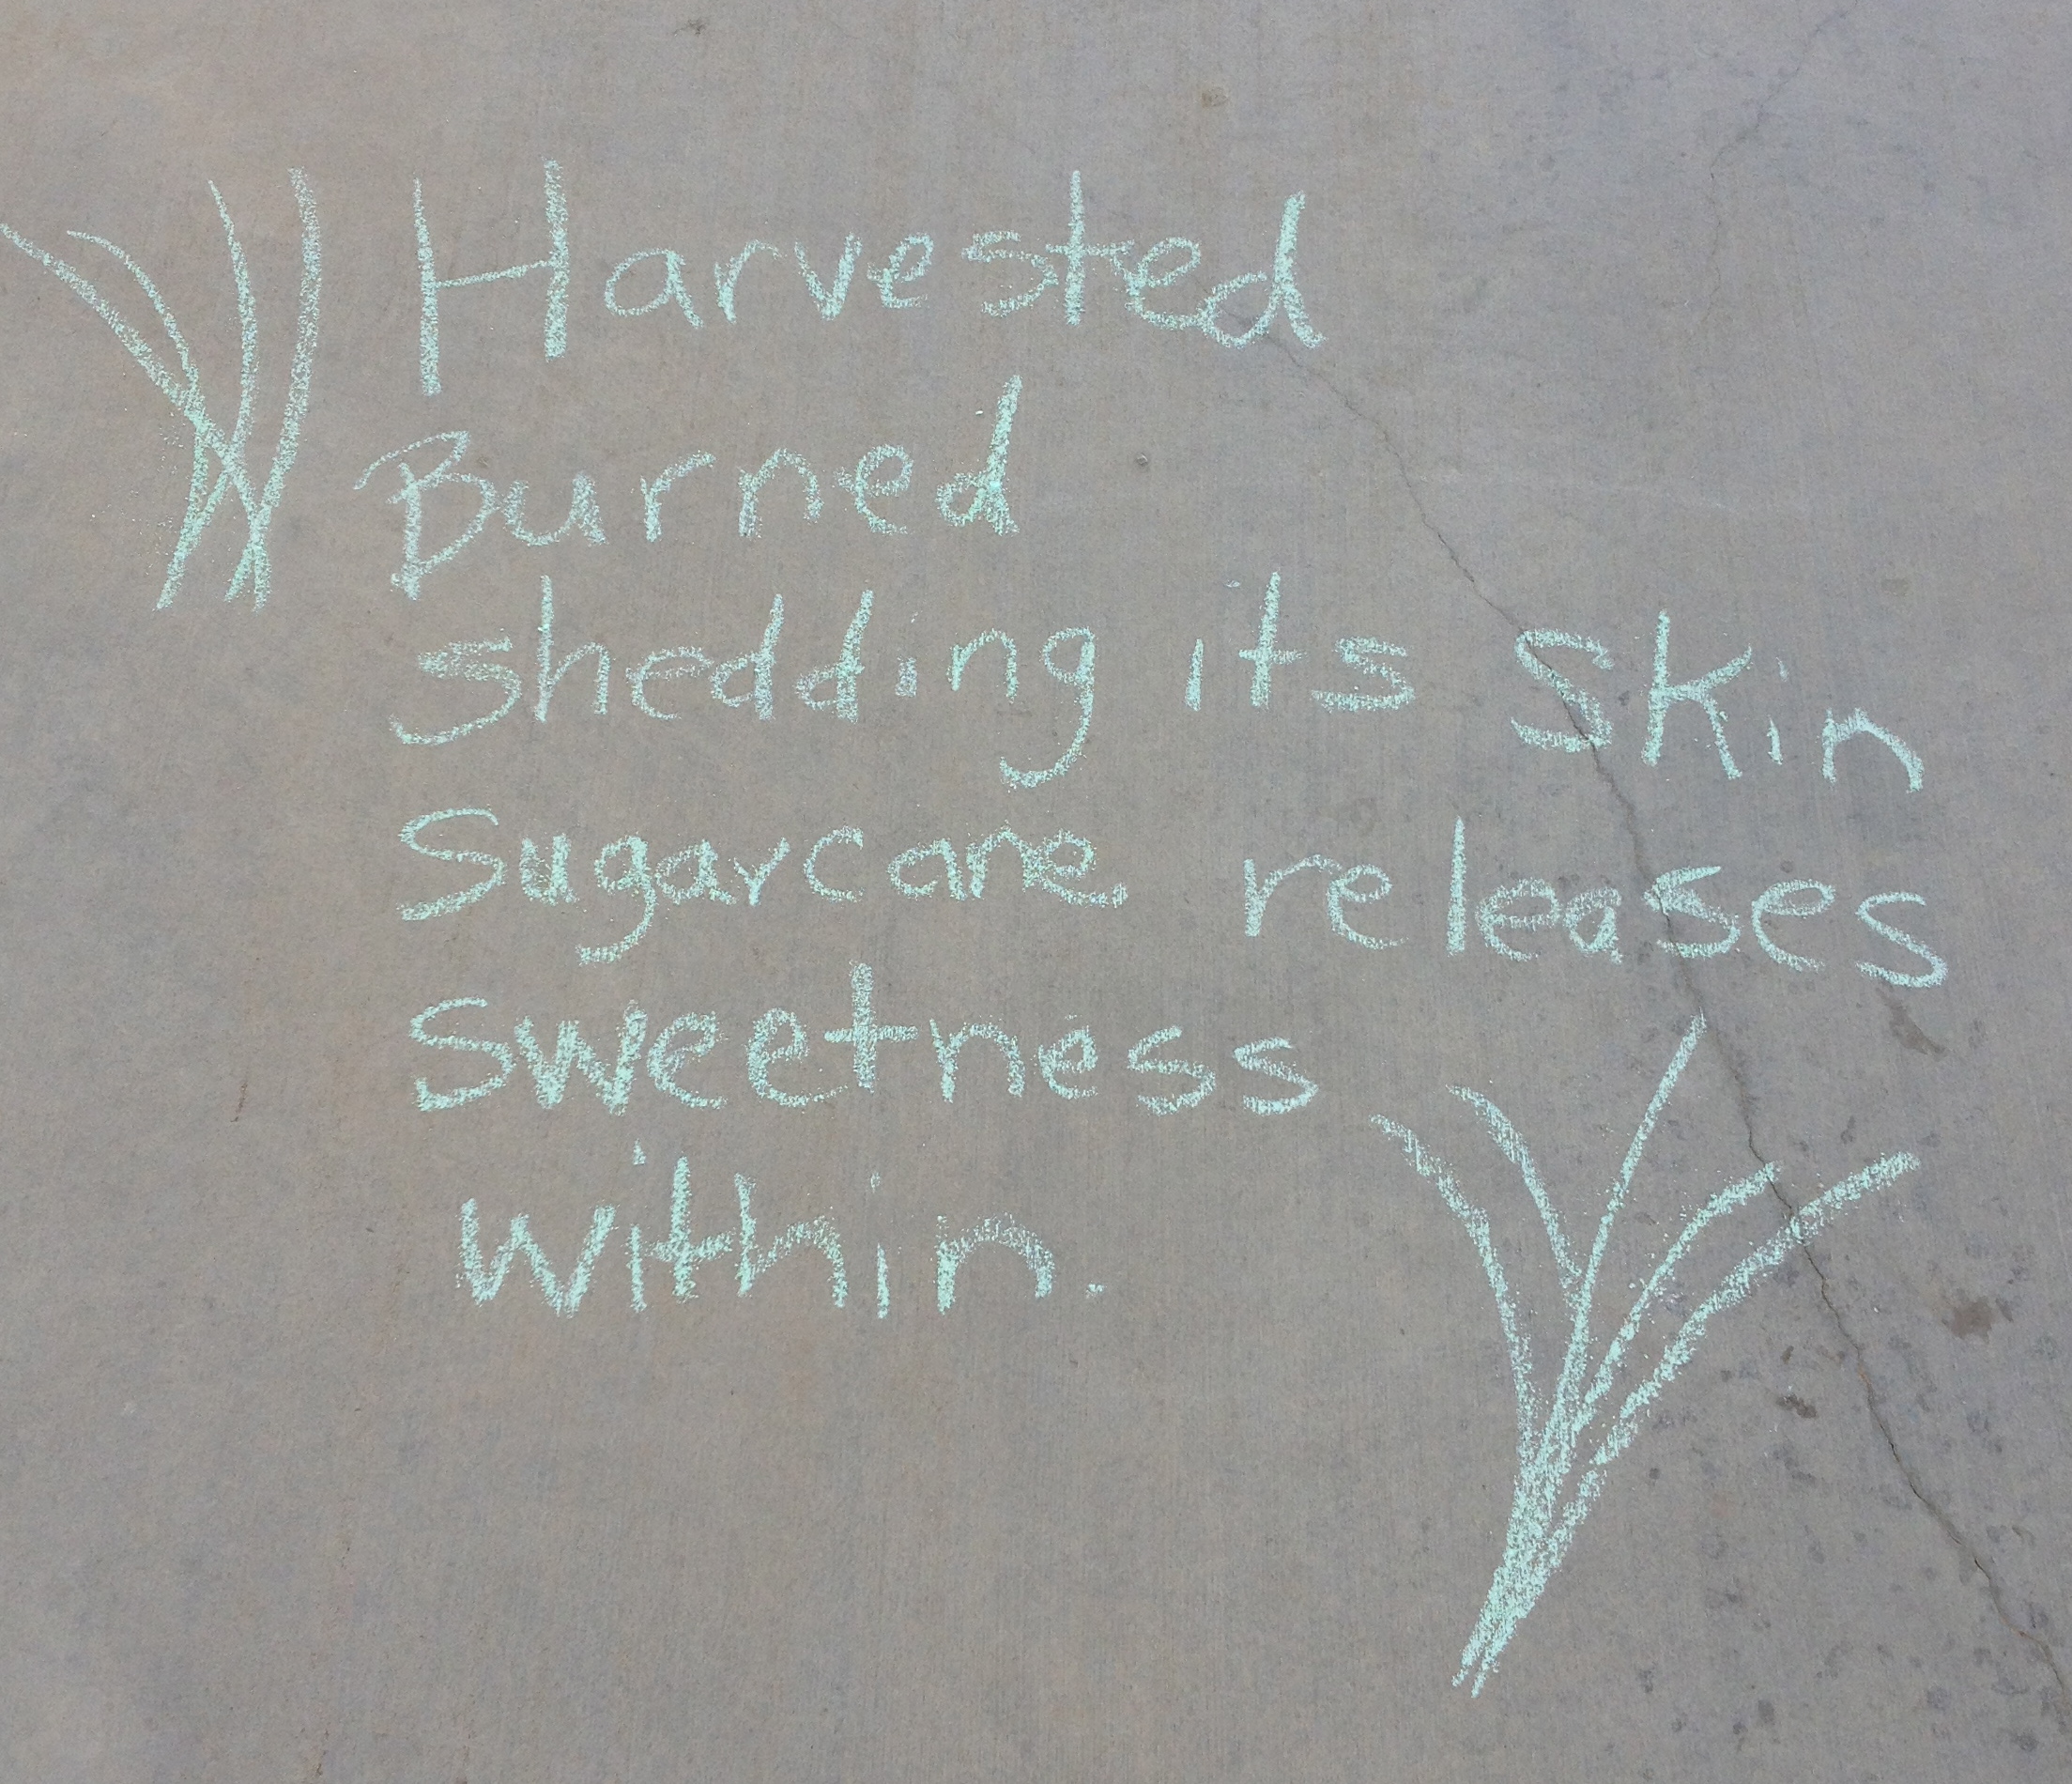 Harvested
Burned
shedding its skin
Sugarcane releases
Sweetness
within.